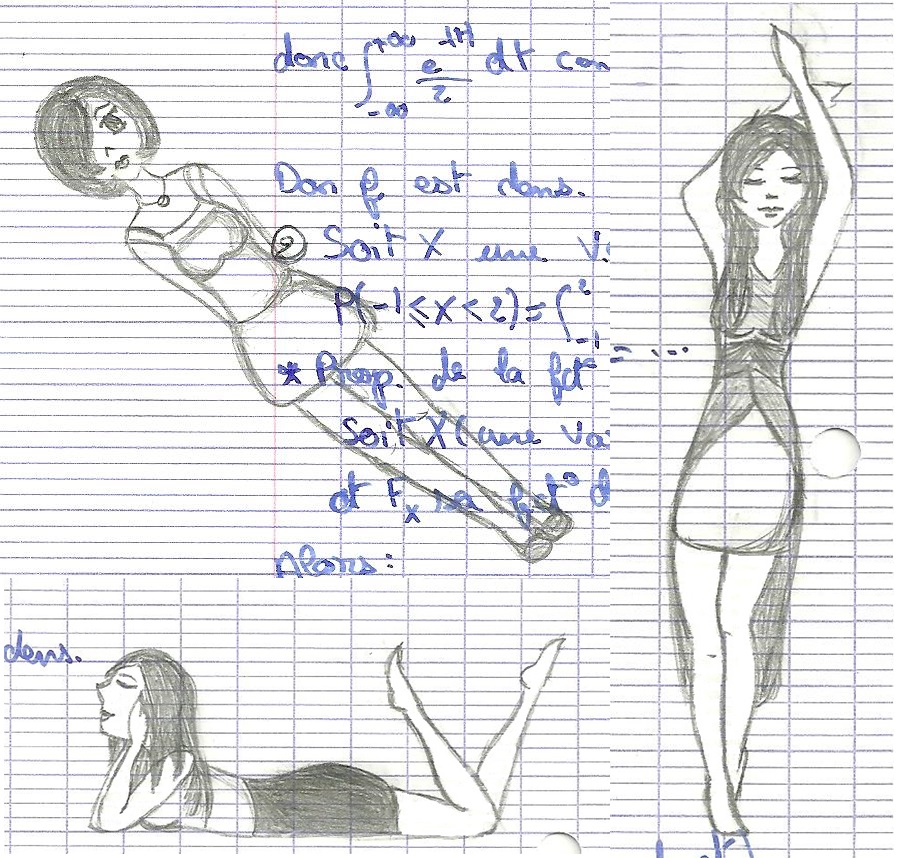 donc ∫_{-∞}^{+∞} e^{-|t|}/2 dt con
Don f est dens.
② Soit X une v.
P(-1≤X<2)=∫_{-1}^{2}
= ...
* Prop. de la fct°
Soit X (une va
et F_X sa fct° d
Alors:
dens.